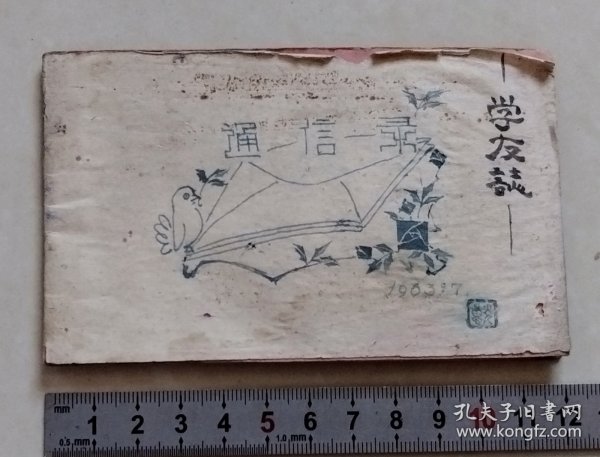 学友誌
通一信一录
1963.7.
mm 1 2 3 4 5 6 7 8 9 10 11 12
0.5,mm 1.0,mm
孔夫子旧书网
www.kongfz.com